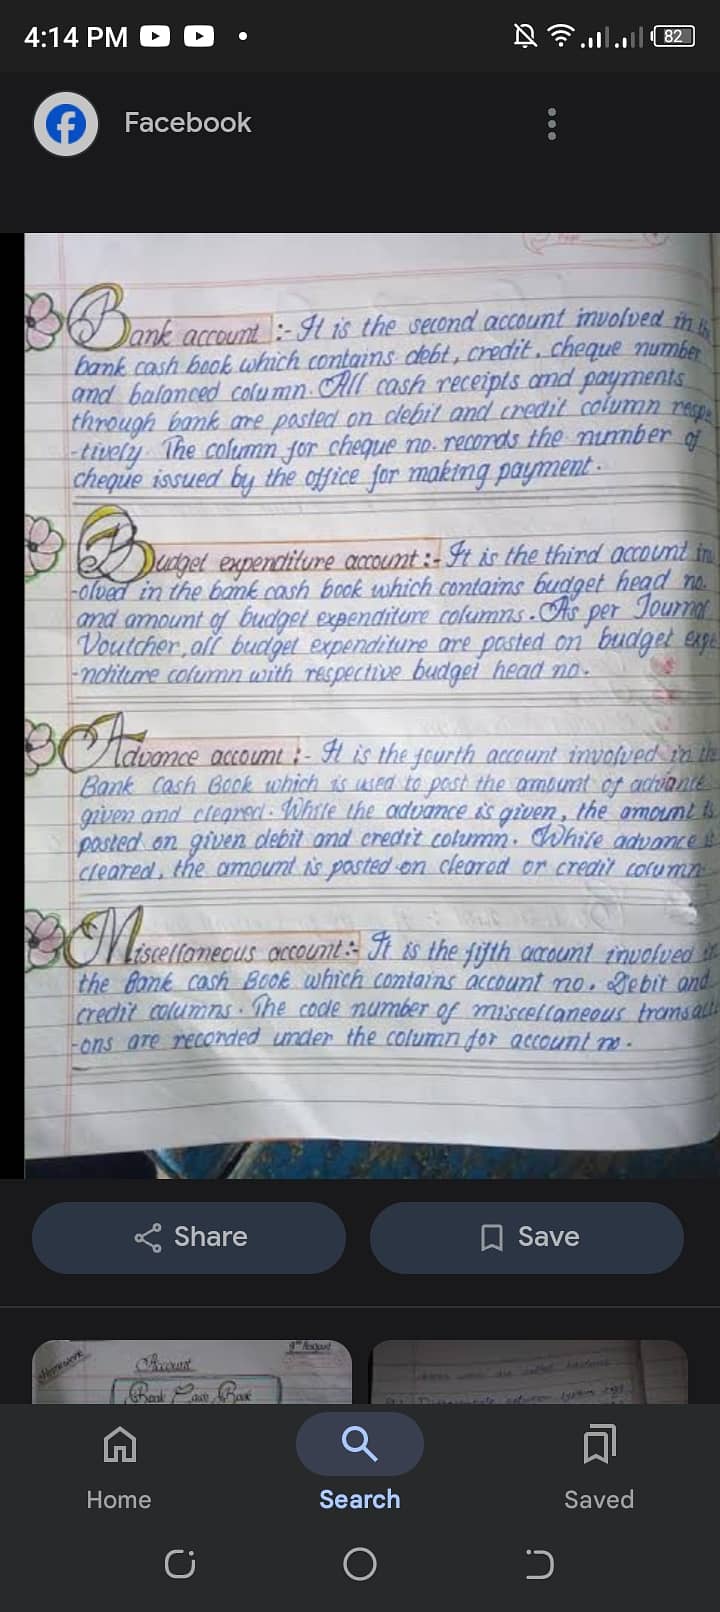 4:14 PM
82
Facebook
Bank account :- It is the second account involved in th
bank cash book which contains debt, credit, cheque number
and balanced column. All cash receipts and payments
through bank are posted on debit and credit column respe
-tively. The column for cheque no. records the number of
cheque issued by the office for making payment.
Budget expenditure account :- It is the third account inv
-olved in the bank cash book which contains budget head no.
and amount of budget expenditure columns. As per Journal
Voutcher, all budget expenditure are posted on budget expe
-nditure column with respective budget head no.
Advance account :- It is the fourth account involved in the
Bank Cash Book which is used to post the amount of advance
given and cleared. While the advance is given, the amount is
posted on given debit and credit column. While advance is
cleared, the amount is posted on cleared or credit column
Miscellaneous account :- It is the fifth account involved in
the Bank cash Book which contains account no. Debit and
credit columns. The code number of miscellaneous transacti
-ons are recorded under the column for account no.
Share
Save
Homework
Account
Bank Cash Book
Home
Search
Saved